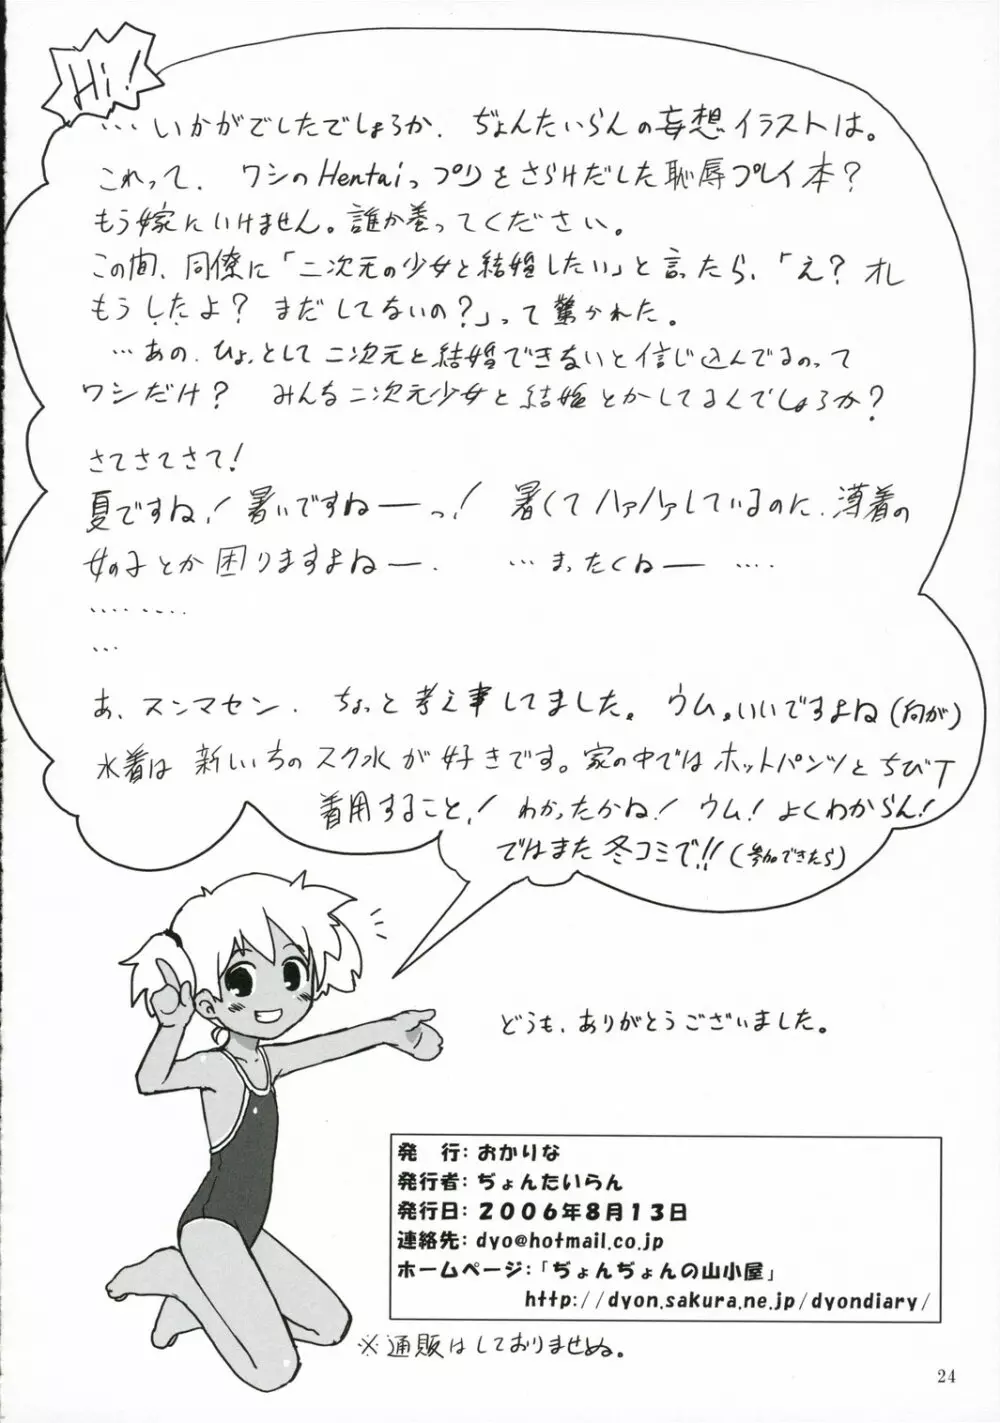 Hi!
…いかがでしたでしょろか. ぢょんたいらんの妄想イラストは。
これって. ワシのHentaiっプリをさらけだした恥辱プレイ本?
もう嫁にいけません。誰か巻ってください。
この間、同僚に「二次元の少女と結婚したい」と言ったら、「え? オレ
もうしたよ? まだしてないの?」って驚かれた。
…あの、ひょっとして二次元と結婚できないと信じ込んでるのって
ワシだけ? みんな二次元少女と結婚とかしてるんでしょろか?
さてさてさて!
夏ですね! 暑いですねーっ! 暑くてハァハァしているのに、薄着の
女の子とか困りますよねー. …まったくねー ….
………
…
あ、スンマセン. ちょっと考え事してました。ウム。いいですよね(何が)
水着は新しいちのスク水が好きです。家の中ではホットパンツとちびT
着用すること! わかったかね! ウム! よくわからん!
ではまた冬コミで!!(参加できたら)
どうも、ありがとうございました。
発 行:おかりな
発行者:ぢょんたいらん
発行日:2006年8月13日
連絡先:dyo@hotmail.co.jp
ホームページ:「ぢょんぢょんの山小屋」
http://dyon.sakura.ne.jp/dyondiary/
※通販はしておりませぬ。
24